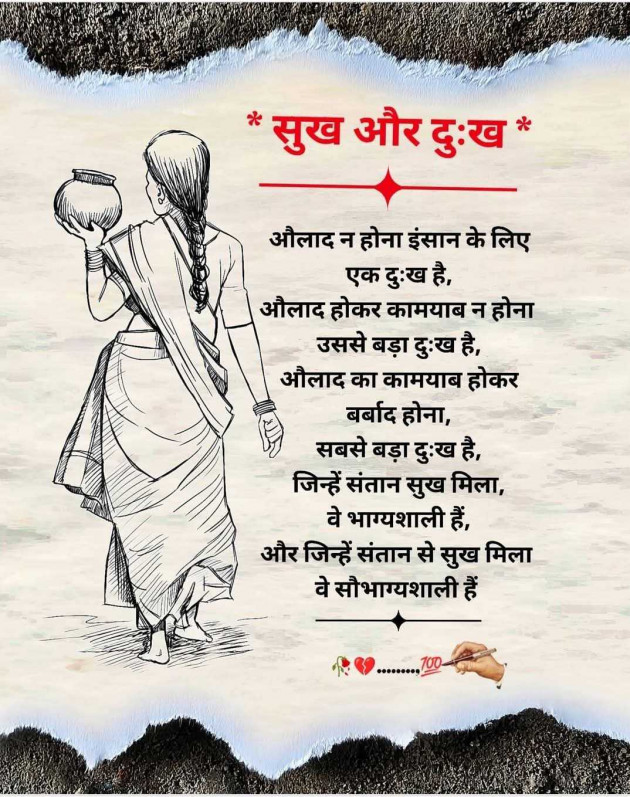 * सुख और दुःख *
औलाद न होना इंसान के लिए
एक दुःख है,
औलाद होकर कामयाब न होना
उससे बड़ा दुःख है,
औलाद का कामयाब होकर
बर्बाद होना,
सबसे बड़ा दुःख है,
जिन्हें संतान सुख मिला,
वे भाग्यशाली हैं,
और जिन्हें संतान से सुख मिला
वे सौभाग्यशाली हैं
🥀💔.........💯✍🏼